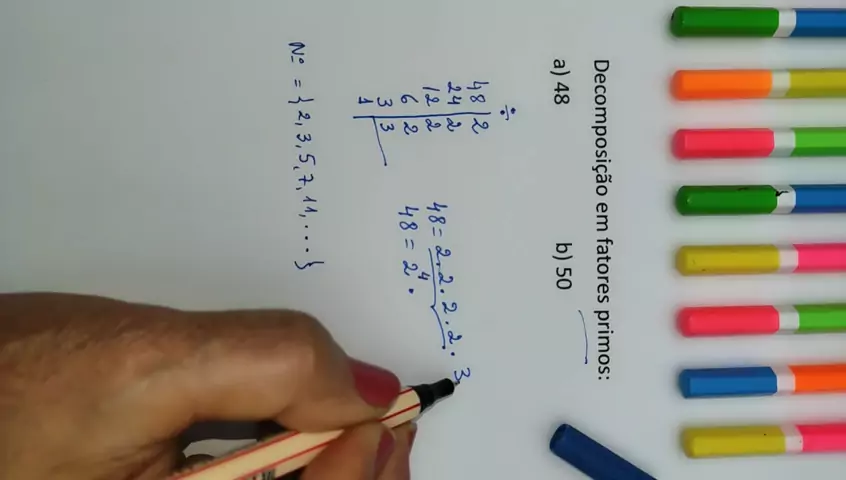 Decomposição em fatores primos:
a) 48
b) 50
÷
48 2
24 2
12 2
6 2
3 3
1
48 = 2 . 2 . 2 . 2 . 3
48 = 2⁴ .
Nº = {2, 3, 5, 7, 11, ...}